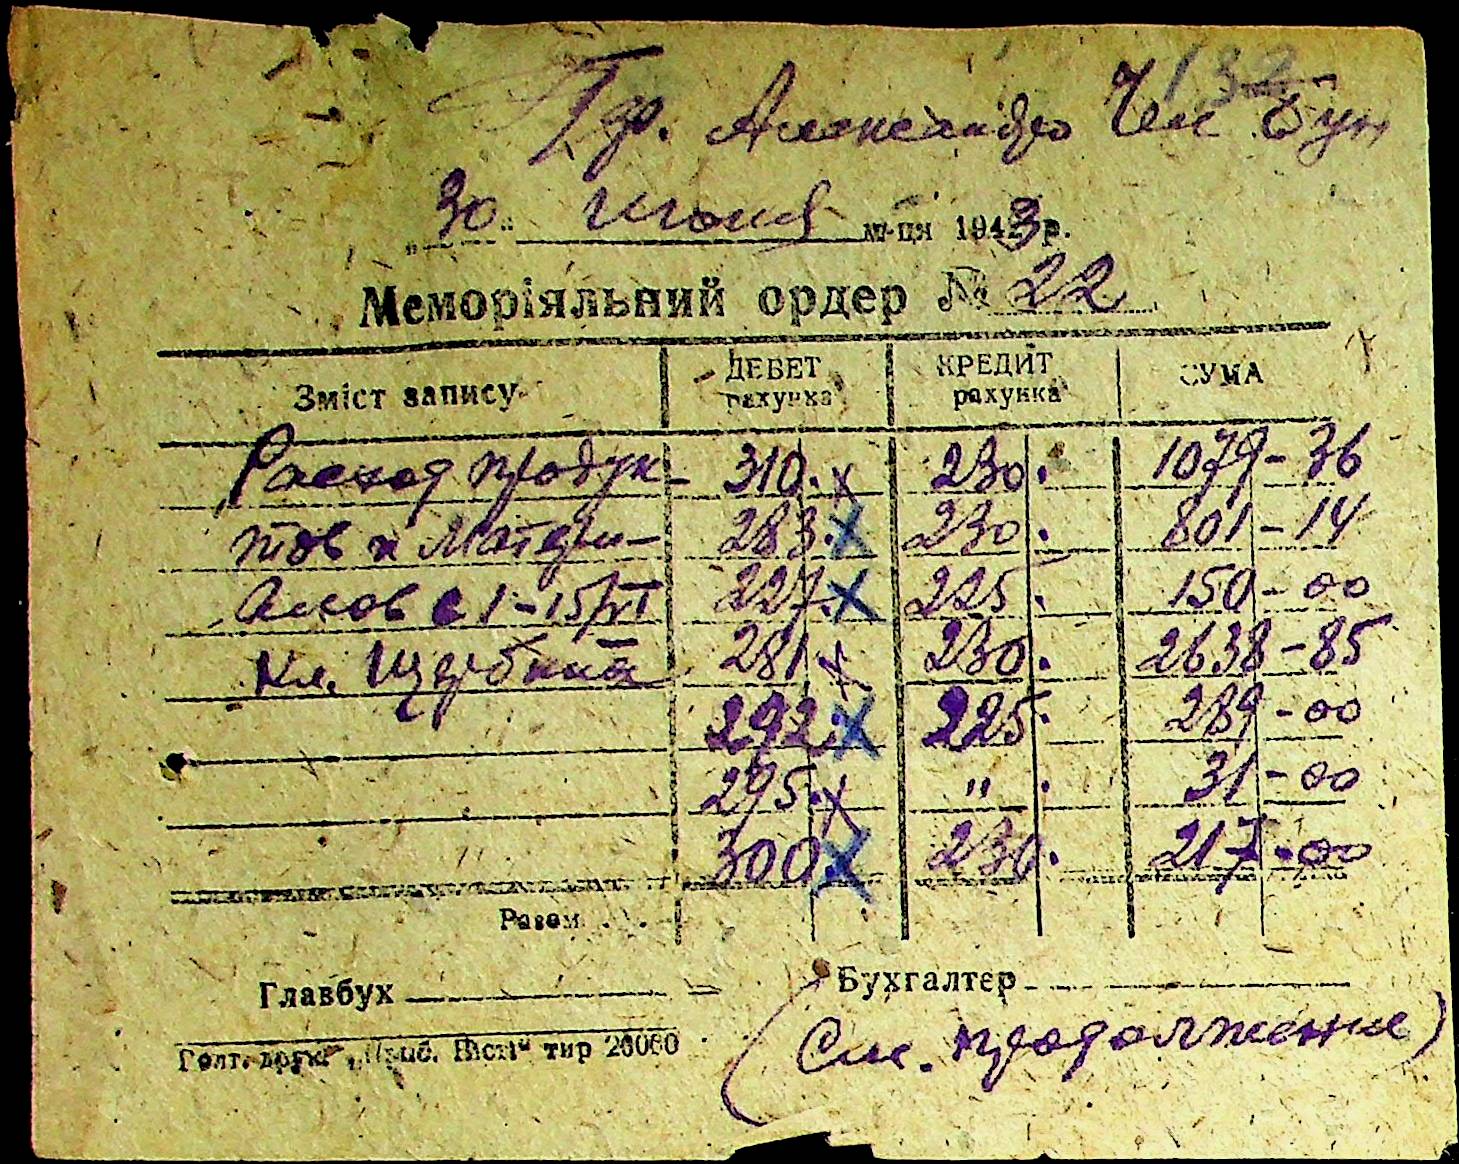 132
Гр. Александр
„30“ июня м-ця 1943 р.
Меморіяльний ордер № 22
Зміст запису ДЕБЕТ рахунка КРЕДИТ рахунка СУМА
Расход продук- 310. x 230. 1079-36
тов и матери- 283. x 230. 801-14
алов с 1-15/VI 227. x 225. 150-00
кл. Щербина 281 x 230. 2638-85
292. x 225. 289-00
295. x " . 31-00
300. x 230. 217-00
Разом . . .
Главбух Бухгалтер
Голт. друк. тир 20000
(См. продолжение)